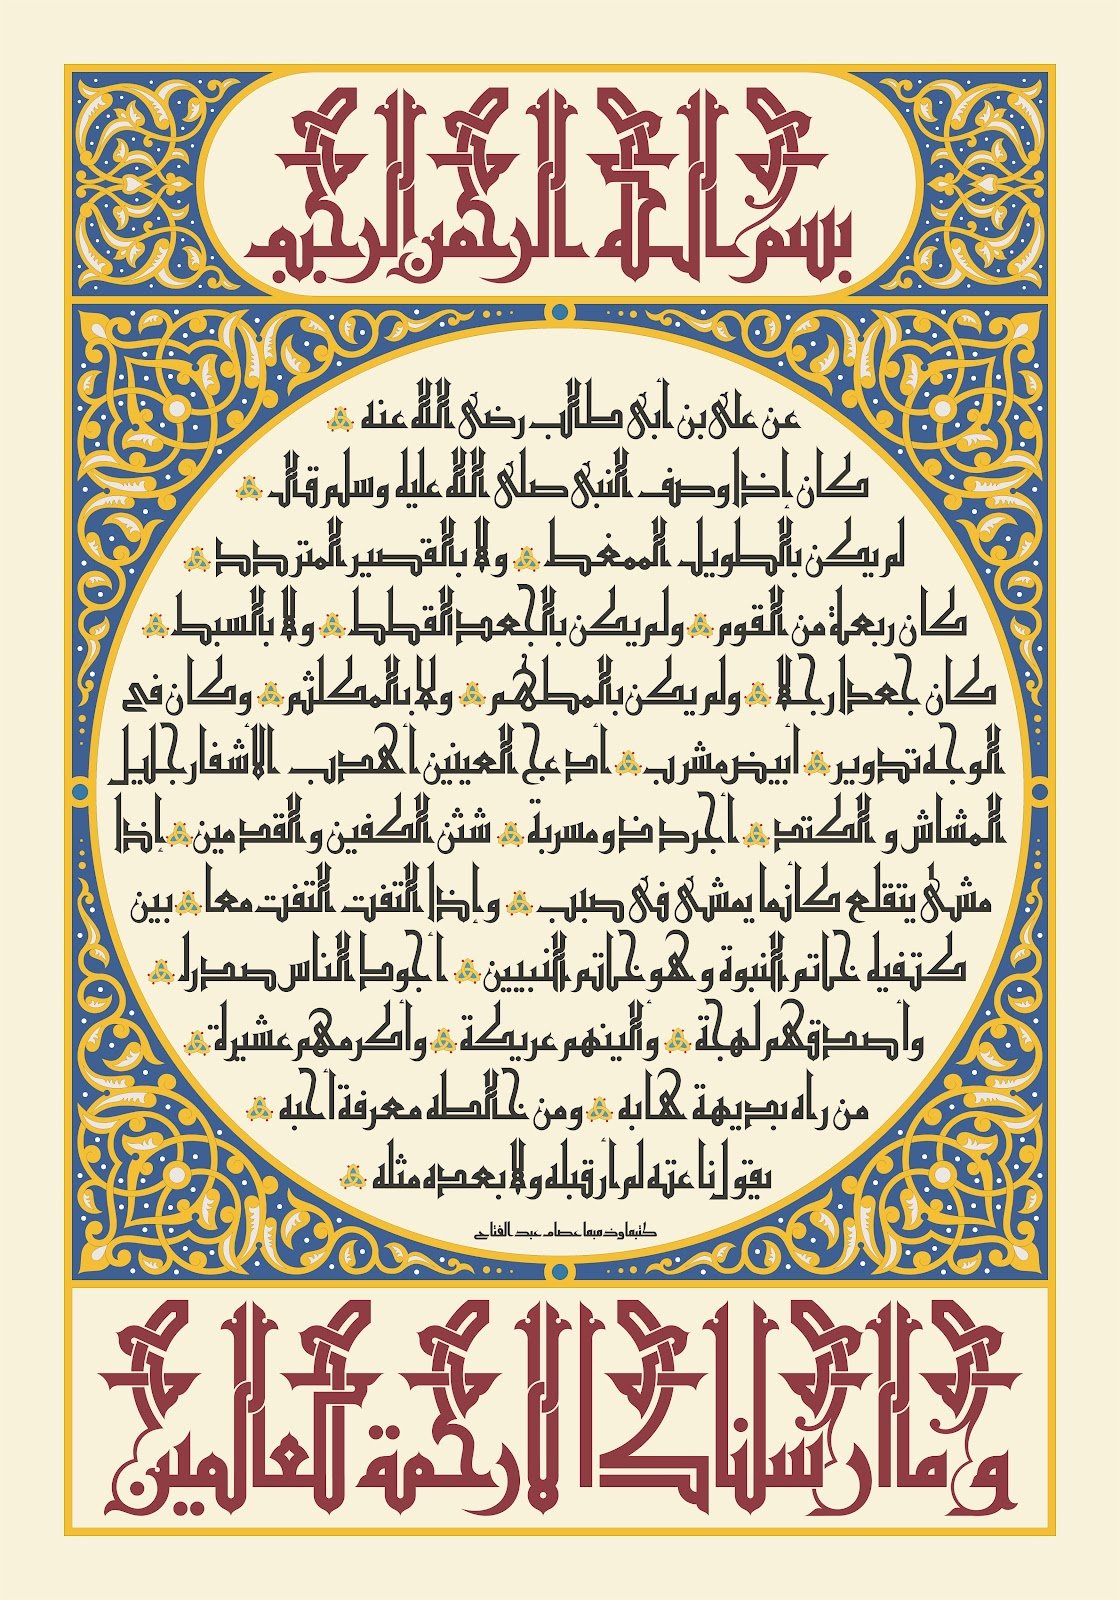 بسم الله الرحمن الرحيم
عن على بن أبى طالب رضى الله عنه
كان إذا وصف النبى صلى الله عليه وسلم قال
لم يكن بالطويل الممغط ولا بالقصير المتردد
كان ربعة من القوم ولم يكن بالجعد القطط ولا بالسبط
كان جعدا رجلا ولم يكن بالمطهم ولا بالمكلثم وكان فى
الوجه تدوير أبيض مشرب أدعج العينين أهدب الأشفار جليل
المشاش و الكتد أجرد ذو مسربة شثن الكفين والقدمين إذا
مشى يتقلع كأنما يمشى فى صبب وإذا التفت التفت معا بين
كتفيه خاتم النبوة وهو خاتم النبيين أجود الناس صدرا
وأصدقهم لهجة وألينهم عريكة وأكرمهم عشيرة
من راه بديهة هابه ومن خالطه معرفة أحبه
يقول ناعته لم أر قبله ولا بعده مثله
كتبها وذهبها عصام عبد الفتاح
وما أرسلناك الا رحمة للعالمين